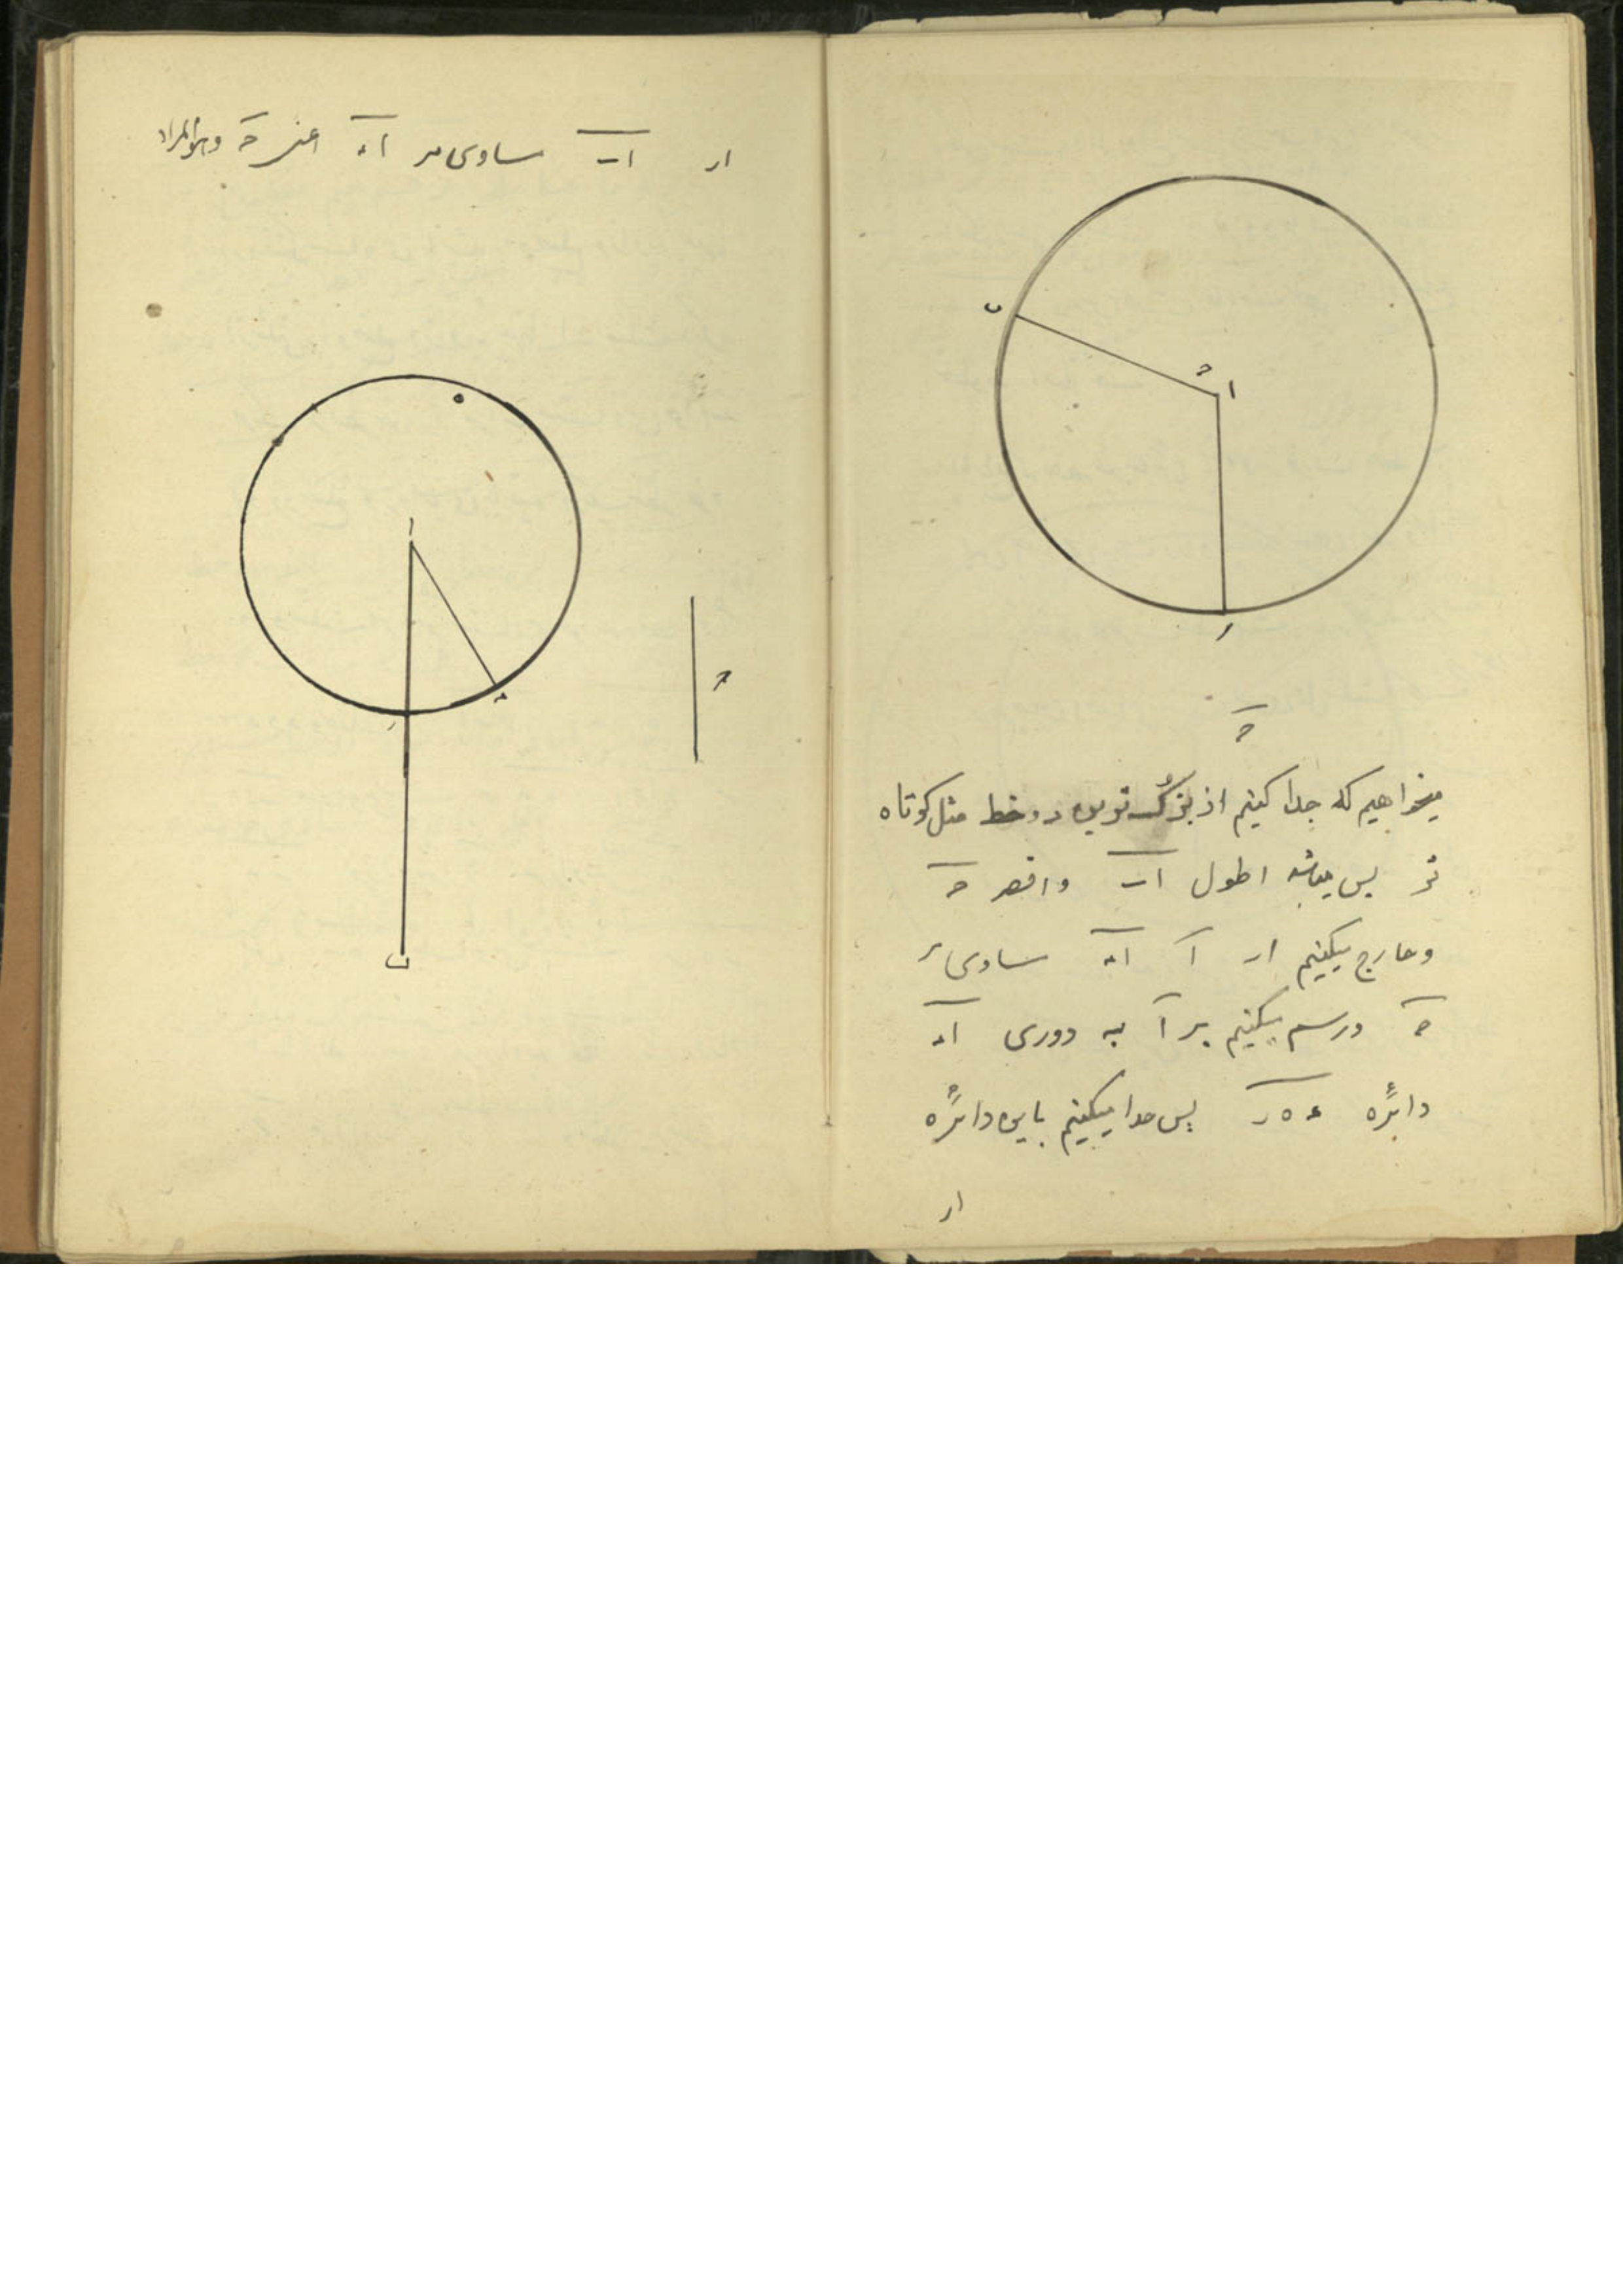 ب
ح
ا
ر
ح
میخواهیم که جدا کنیم از بزرگ ترین دو خط مثل کوتاه
تر پس میباشد اطول اب و اقصر ح
و خارج میکنیم از ا اء مساوی
ح و رسم میکنیم بر ا به دوری اء
دائره ء ه ر پس جدا میکنیم باین دائره
از
از اب مساوی اء اعنی ح و هو المراد
ا
ح
ر
ب